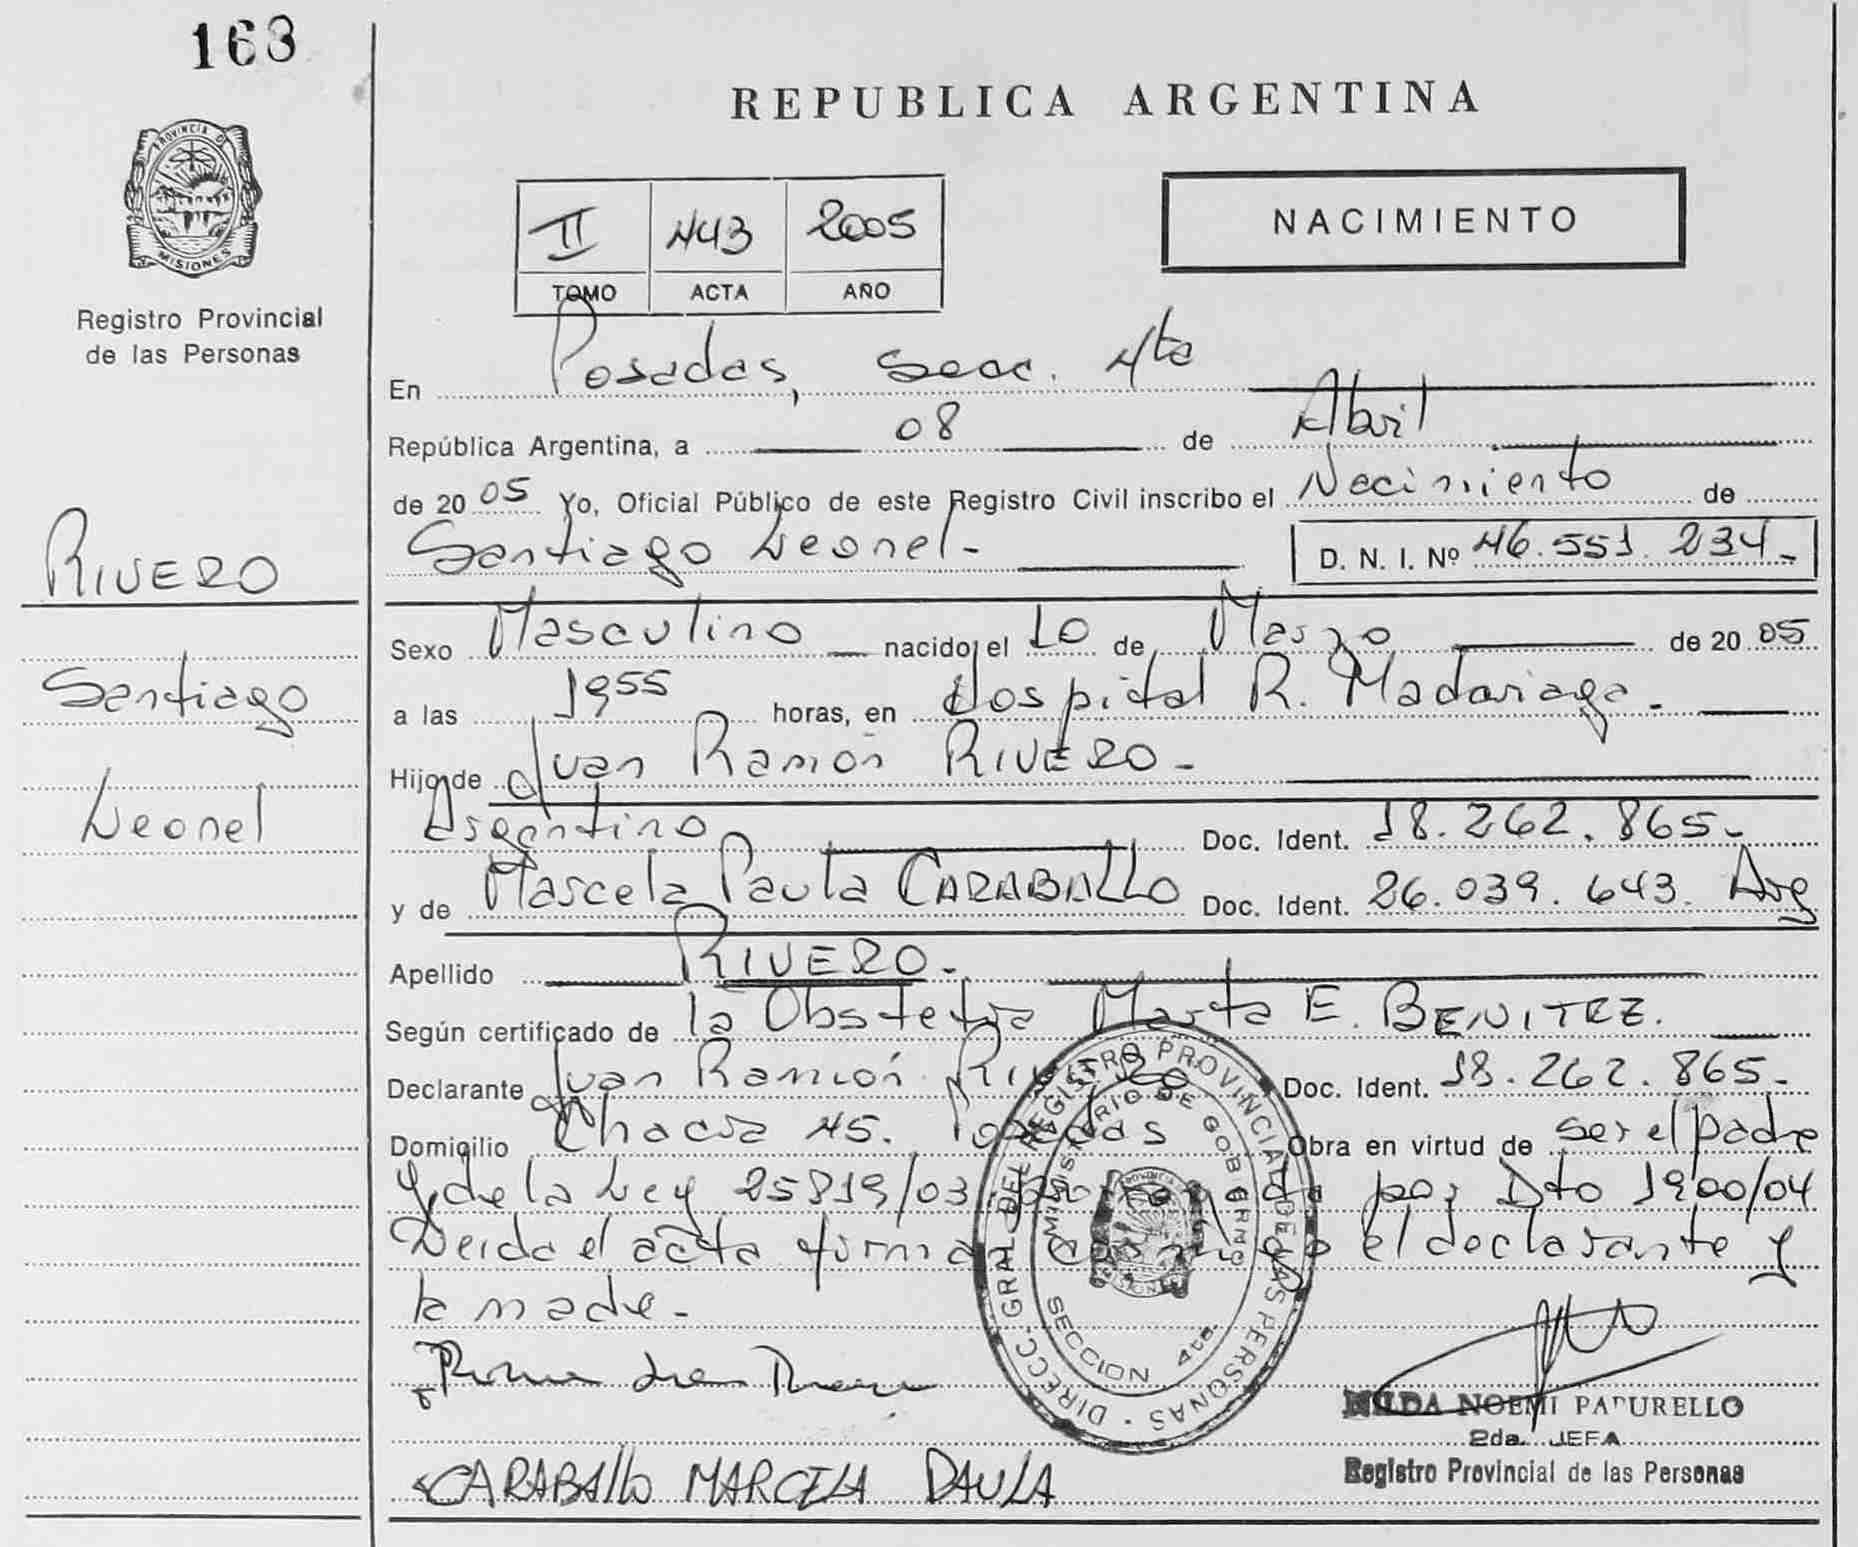 168
REPUBLICA ARGENTINA
PROVINCIA DE
MISIONES
Registro Provincial
de las Personas
II 443 2005
TOMO ACTA AÑO
NACIMIENTO
En Posadas, Secc. 4ta
República Argentina, a 08 de Abril
de 2005 Yo, Oficial Público de este Registro Civil inscribo el Nacimiento de
Santiago Leonel.- D. N. I. Nº 46.551.234.-
RIVERO
Santiago
Leonel
Sexo Masculino nacido el 10 de Marzo de 2005
a las 1955 horas, en Hospital R. Madariaga.-
Hijo de Juan Ramón RIVERO.-
Argentino Doc. Ident. 18.262.865.-
y de Marcela Paula CARABALLO Doc. Ident. 26.039.643. Arg
Apellido RIVERO.-
Según certificado de la Obstetra Marta E. BENITEZ.
Declarante Juan Ramón Rivero Doc. Ident. 18.262.865.-
Domicilio Chacra 45. Posadas Obra en virtud de ser el padre
y de la Ley 25819/03 por Dto 1900/04
Leida el acta firman conmigo el declarante y
la madre.-
DIRECC. GRAL. DEL REGISTRO PROVINCIAL DE LAS PERSONAS
MINISTERIO DE GOBIERNO
SECCION 4ta.
NOEMI PAPURELLO
2da. JEFA
Registro Provincial de las Personas
CARABAllo MARCELA PAULA